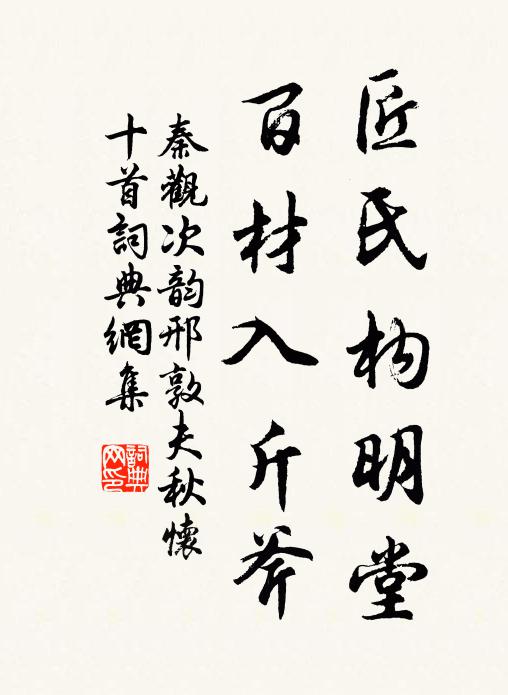 匠氏构明堂
百材入斤斧
秦觀次韵邢敦夫秋懷
十首詞典網集
詞典
网印